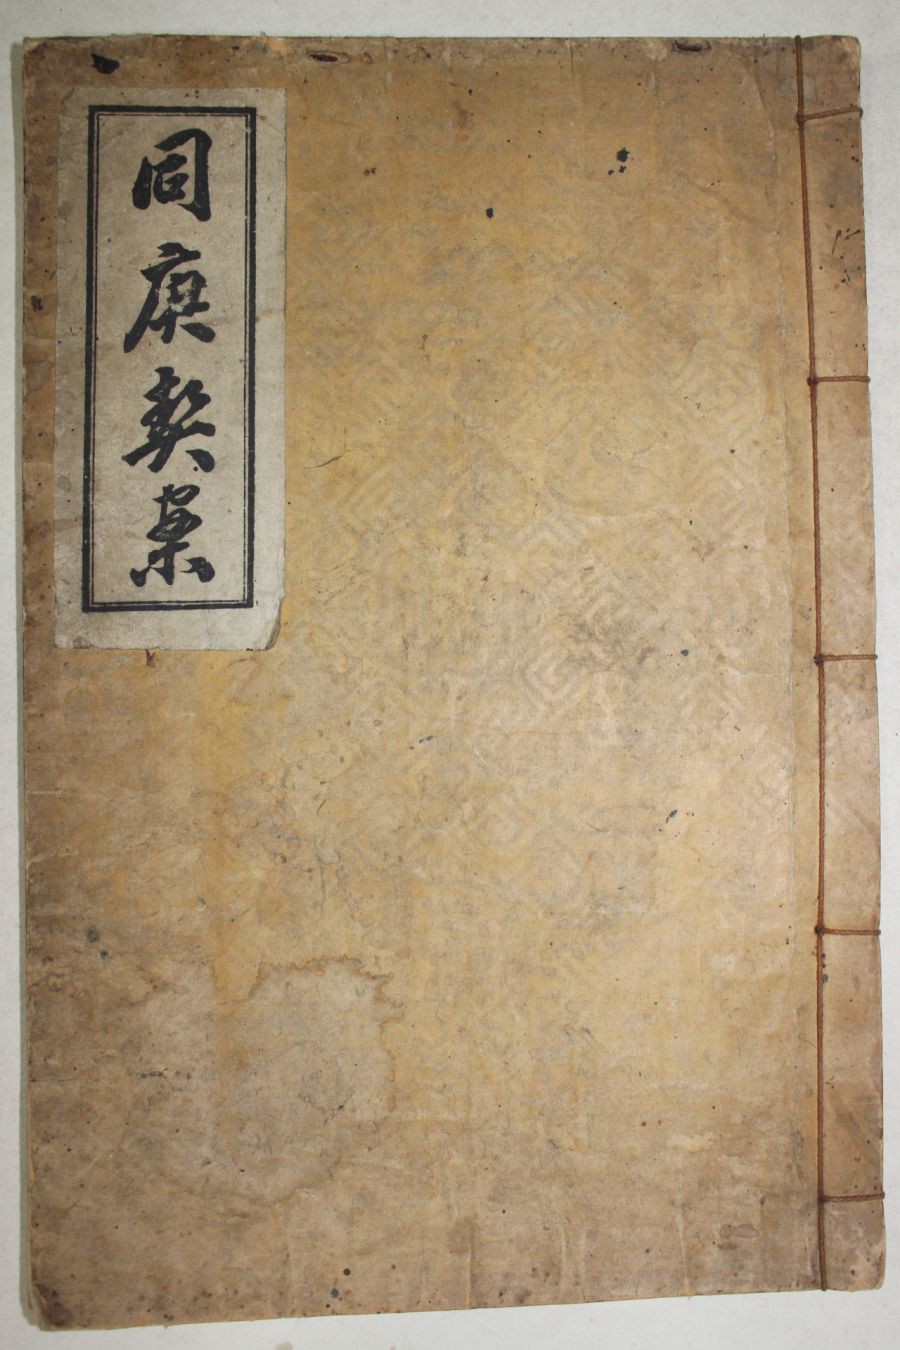 同庚契案